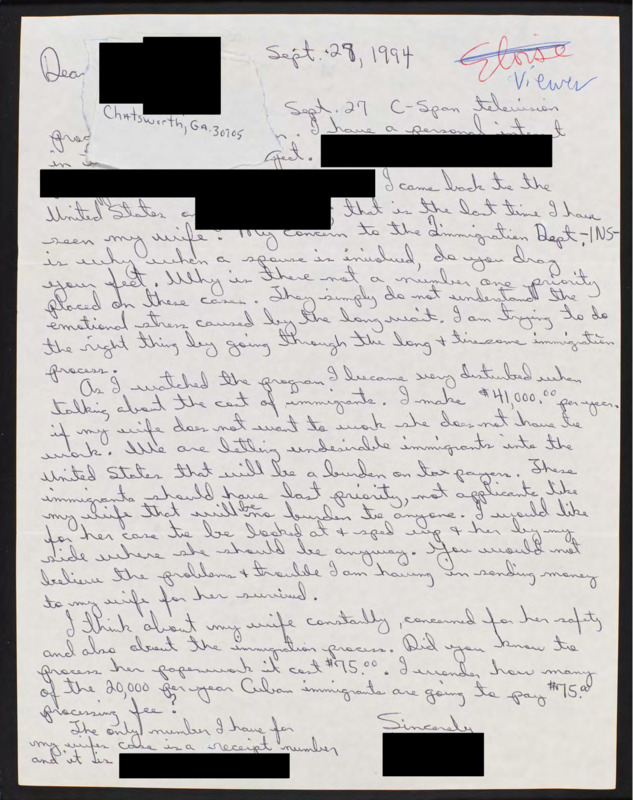 Sept. 28, 1994
Eloise
Viewer
Dear
Chatsworth, GA. 30705
Sept. 27 C-Span television
I have a personal interest
in
I came back to the
United States that is the last time I have
seen my wife. My concern to the Immigration Dept-INS-
is why when a spouse is involved, do you drag
your feet. Why is there not a number one priority
placed on these cases. They simply do not understand the
emotional stress caused by the long wait. I am trying to do
the right thing by going through the long + immigration
process.
As I watched the program I became very disturbed when
talking about the cost of immigrants. I make $41,000.00 per year.
if my wife does not want to work she does not have to
work. We are letting undesirable immigrants into the
United States that will be a burden on tax payers. These
immigrants should have last priority, not applicants like
my wife that will be no burden to anyone. I would like
for her case to be looked at + sped up + her by my
side where she should be anyway. You would not
believe the problems + trouble I am having in sending money
to my wife for her survival.
I think about my wife constantly, concerned for her safety
and also about the immigration process. Did you know to
process her paperwork it cost $75.00. I wonder how many
of the 20,000 per year Cuban immigrants are going to pay $75.00
processing fee?
The only number I have for
my wifes case is a receipt number
and it is
Sincerely